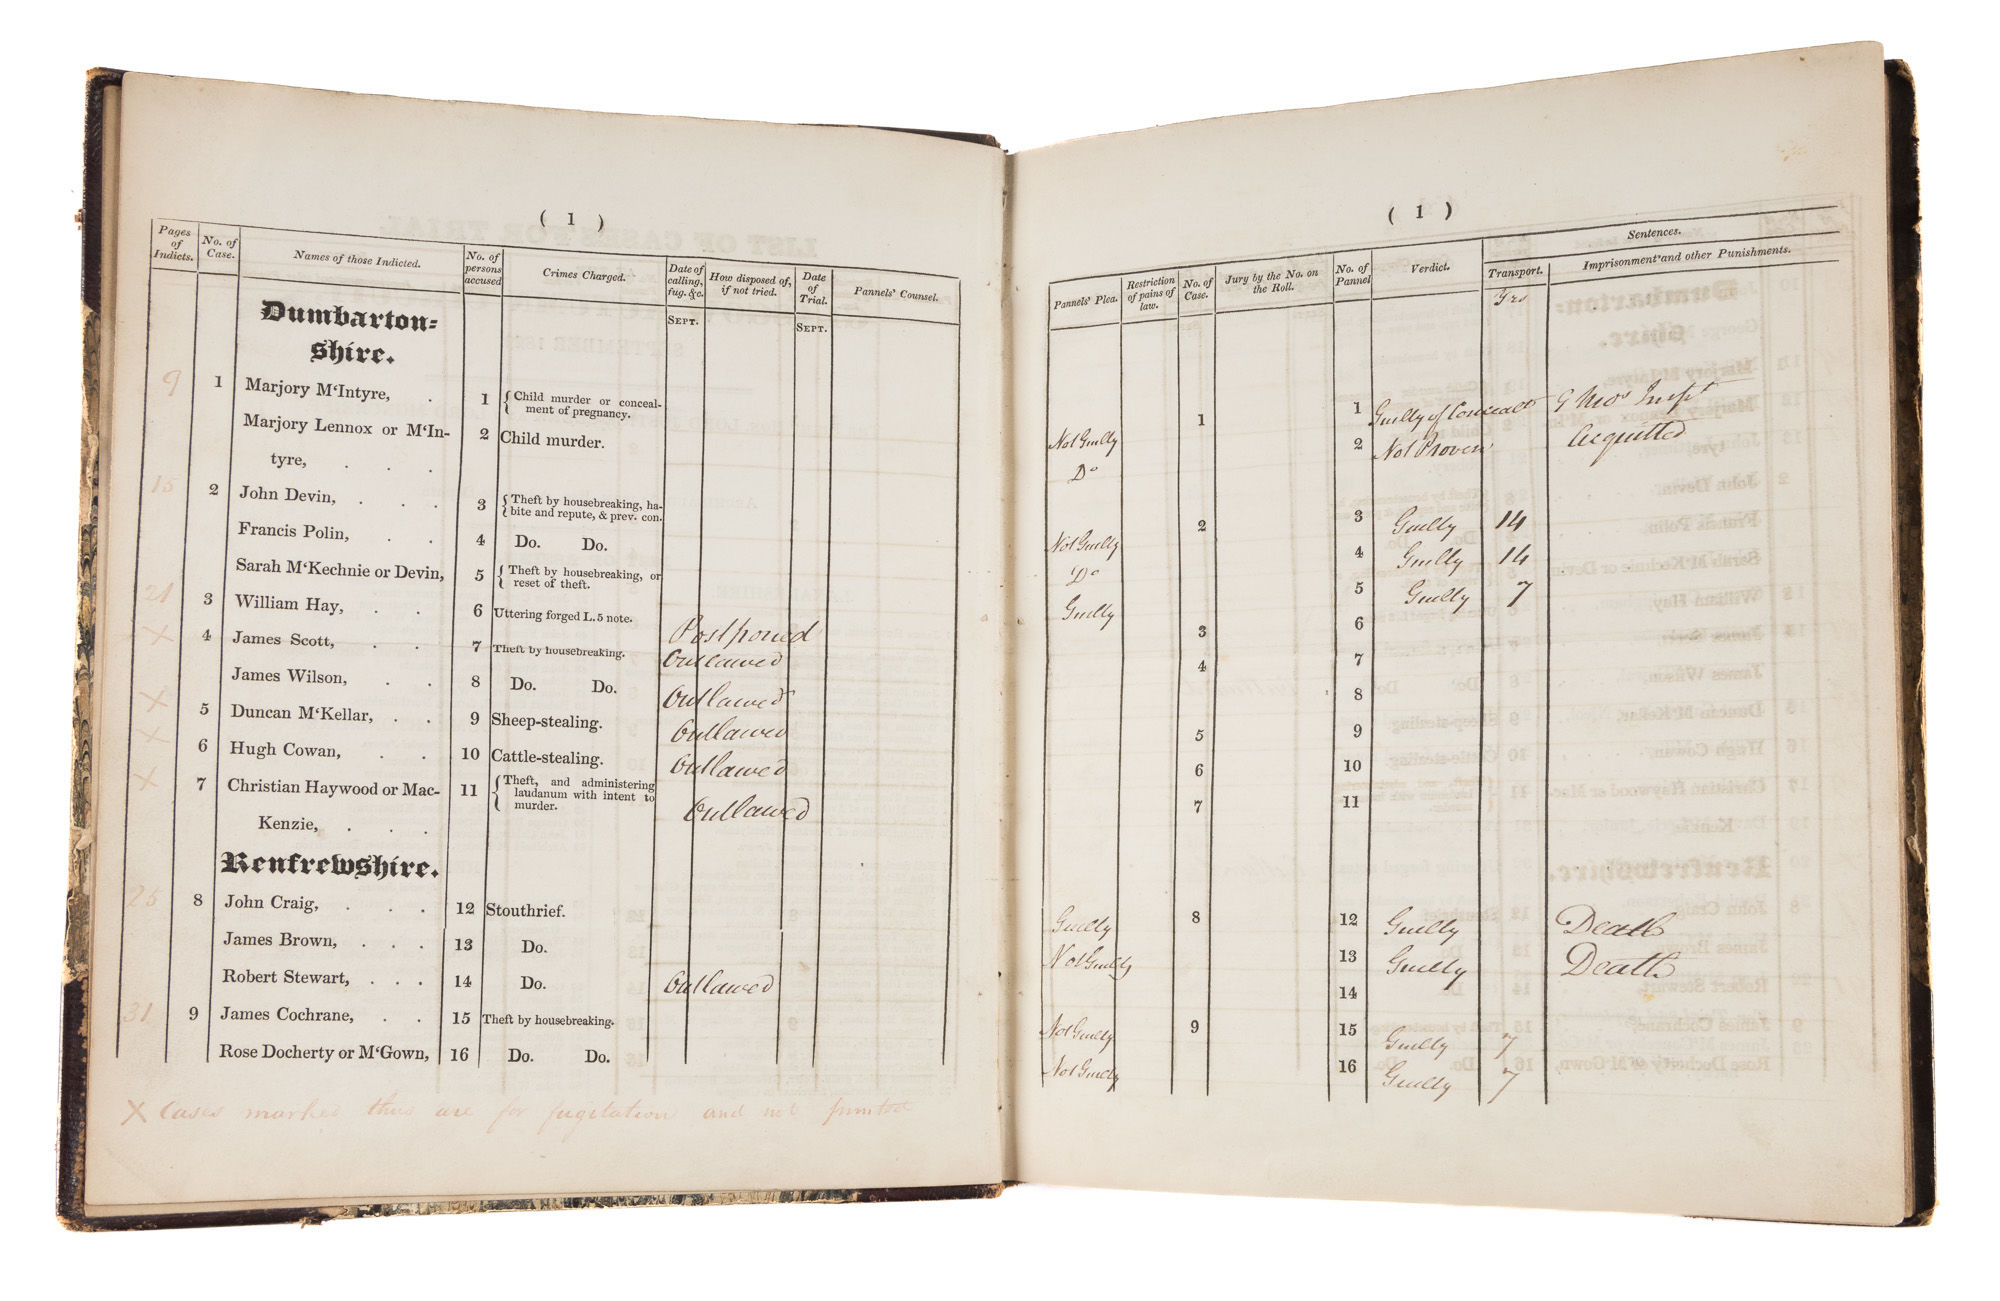 ( 1 )
Pages of Indicts. No. of Case. Names of those Indicted. No. of persons accused Crimes Charged. Date of calling, fug. &c. How disposed of, if not tried. Date of Trial. Pannels' Counsel.
Dumbarton-
shire.
SEPT. SEPT.
9 1 Marjory M'Intyre, . 1 { Child murder or conceal-
ment of pregnancy.
Marjory Lennox or M'In- 2 Child murder.
tyre, . . .
15 2 John Devin, . . . 3 { Theft by housebreaking, ha-
bite and repute, & prev. con.
Francis Polin, . . 4 Do. Do.
Sarah M'Kechnie or Devin, 5 { Theft by housebreaking, or
reset of theft.
21 3 William Hay, . . 6 Uttering forged L.5 note. Postponed
X 4 James Scott, . . 7 Theft by housebreaking. Outlawed
James Wilson, . . 8 Do. Do. Outlawed
X 5 Duncan M'Kellar, . . 9 Sheep-stealing. Outlawed
X 6 Hugh Cowan, . . 10 Cattle-stealing. Outlawed
X 7 Christian Haywood or Mac- 11 { Theft, and administering
laudanum with intent to
murder. Outlawed
Kenzie, . . .
Renfrewshire.
25 8 John Craig, . . . 12 Stouthrief.
James Brown, . . . 13 Do.
Robert Stewart, . . . 14 Do. Outlawed
31 9 James Cochrane, . . 15 Theft by housebreaking.
Rose Docherty or M'Gown, 16 Do. Do.
X Cases marked thus are for fugitation and not printed
( 1 )
Pannels' Plea. Restriction of pains of law. No. of Case. Jury by the No. on the Roll. No. of Pannel Verdict. Sentences.
Transport. Imprisonment and other Punishments.
Yrs
Not Guilty 1 1 Guilty of Concealt 9 Mos Impt
Do 2 Not Proven Acquitted
Not Guilty 2 3 Guilty 14
Do 4 Guilty 14
Guilty 5 Guilty 7
3 6
4 7
8
5 9
6 10
7 11
Guilty 8 12 Guilty Death
Not Guilty 13 Guilty Death
14
Not Guilty 9 15 Guilty 7
Not Guilty 16 Guilty 7